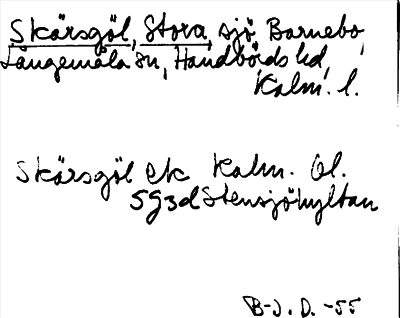 Skärsgöl, Stora, sjö Barnebo,
Långemåla sn, Handbörds hd,
Kalm. l.
Skärsgöl ek Kalm. öl.
5g3d Stensjöhyltan
B-J. D. -55